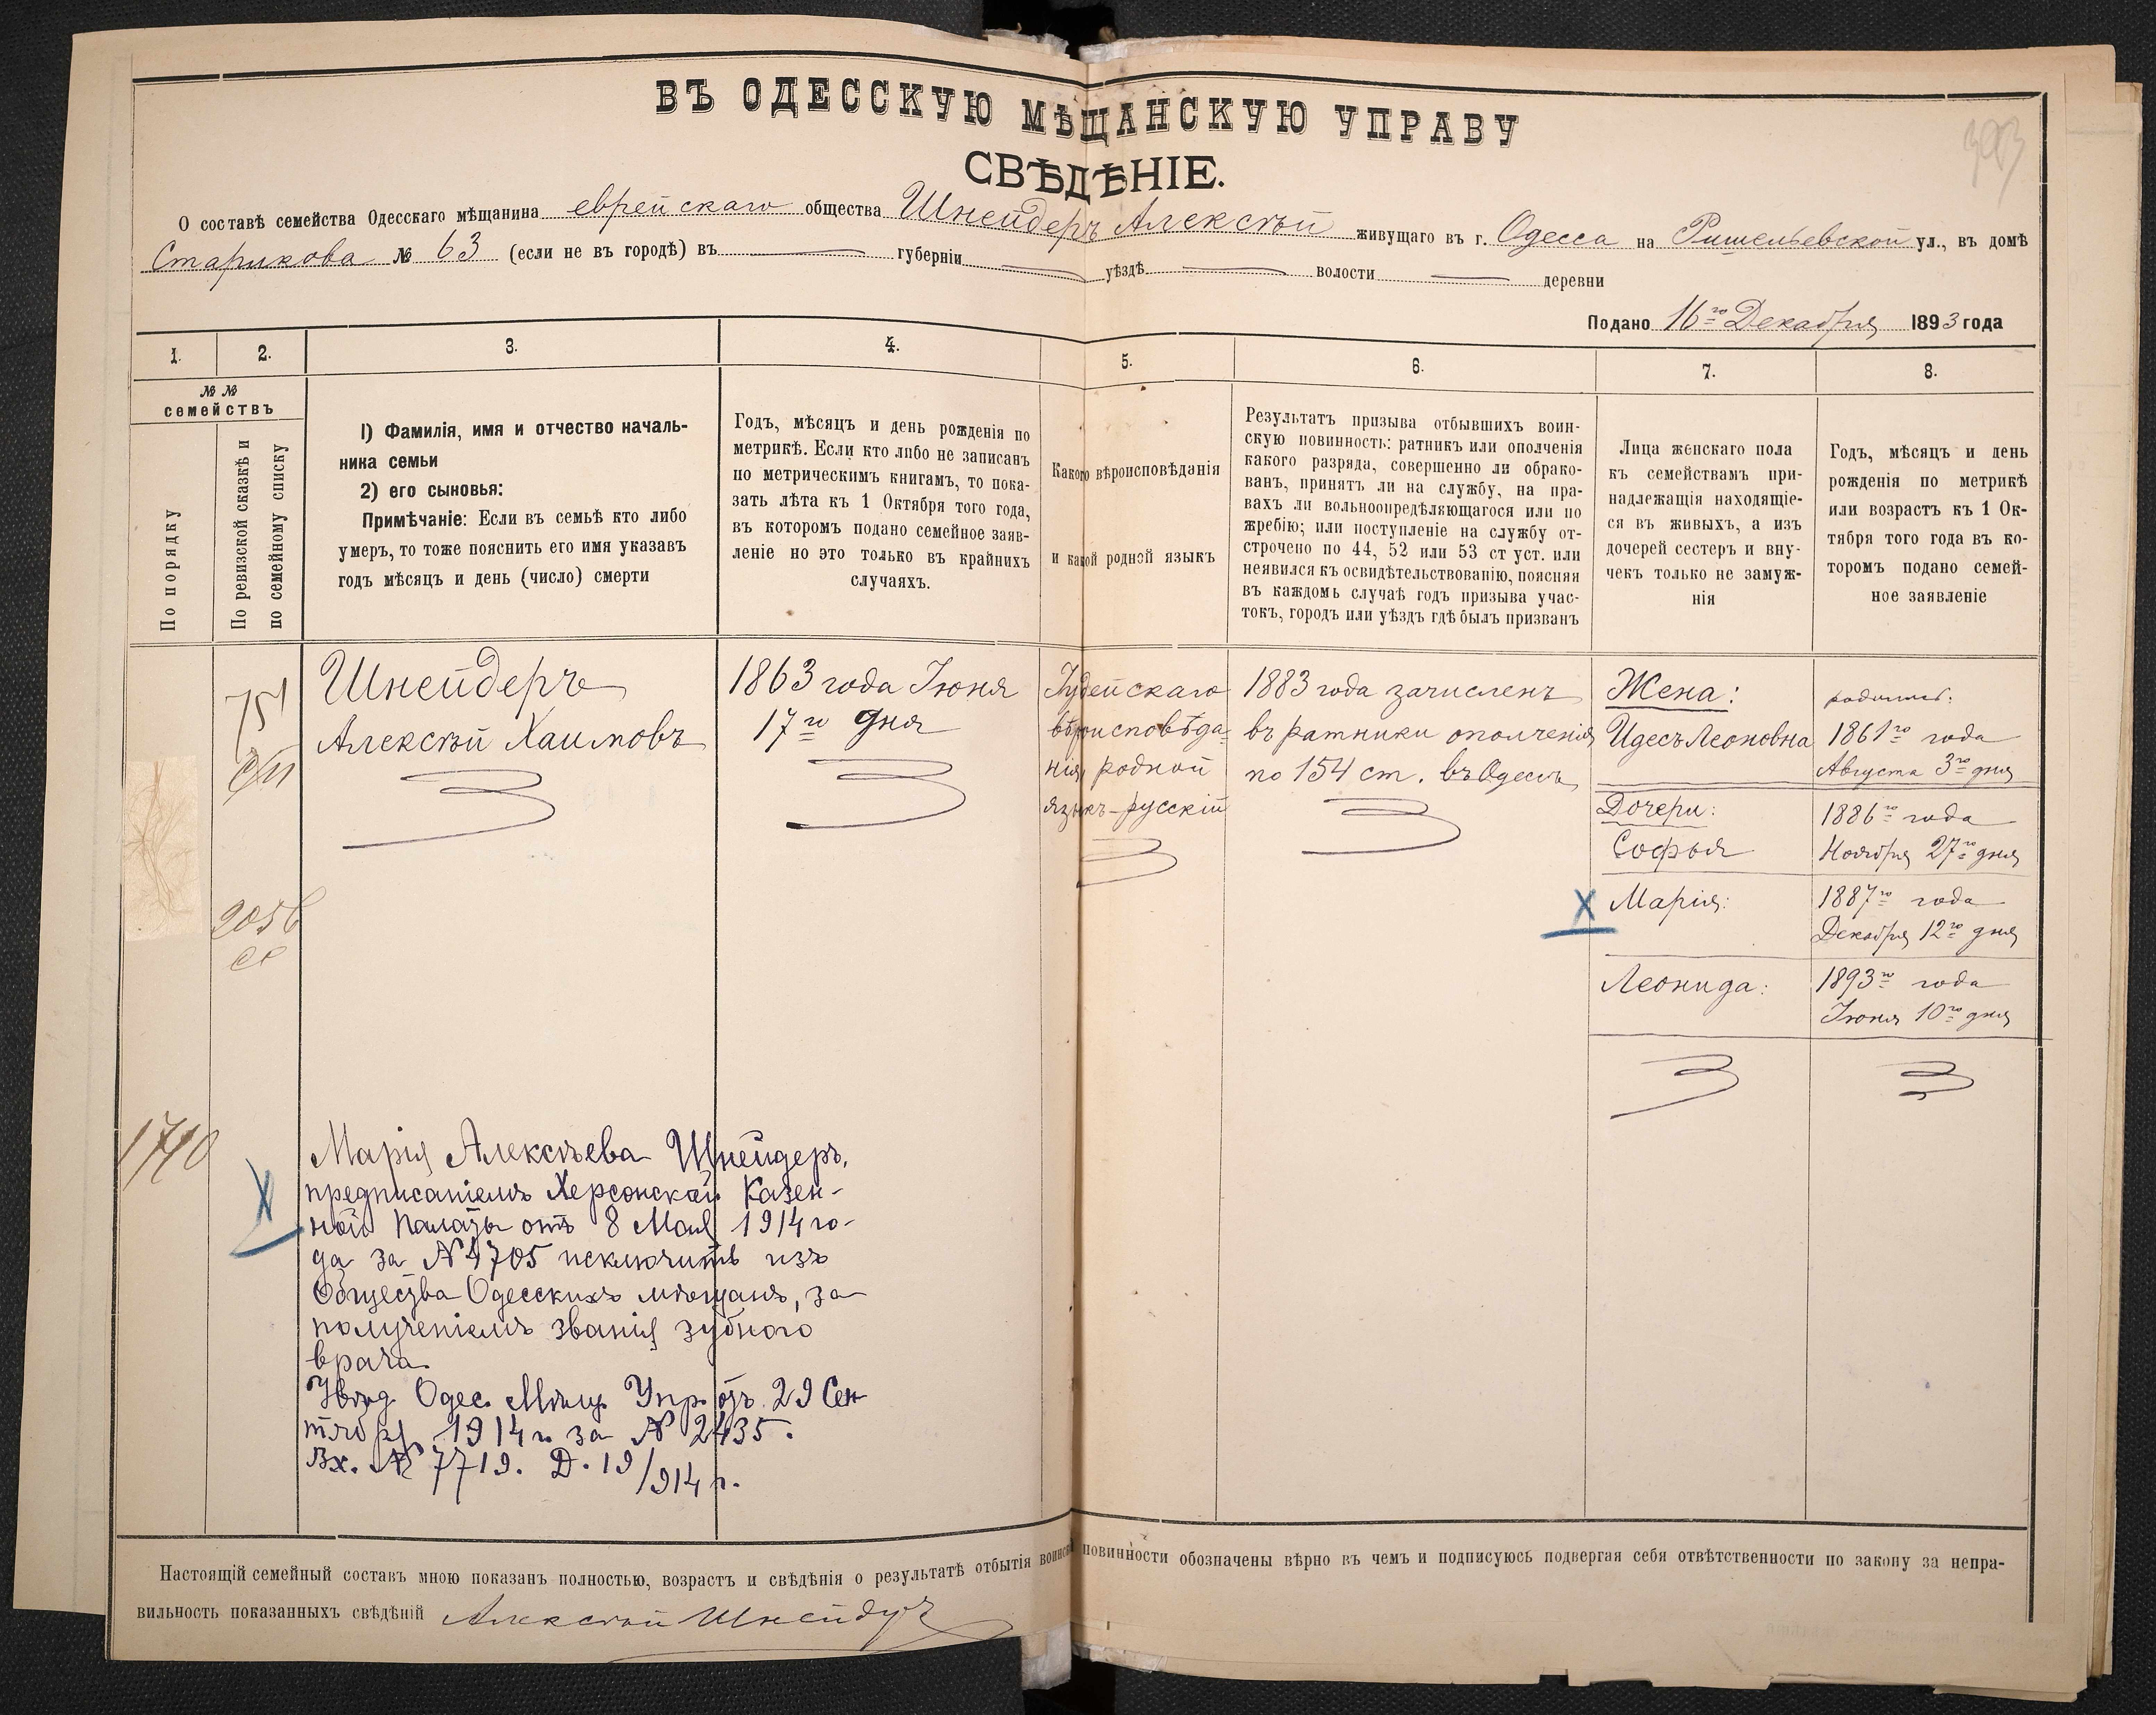 ВЪ ОДЕССКУЮ МѢЩАНСКУЮ УПРАВУ
СВѢДѢНІЕ.
О составѣ семейства Одесскаго мѣщанина еврейскаго общества Шнейдеръ Алексѣй живущаго въ г. Одесса на Ришельевской ул., въ домѣ
Старикова № 63 (если не въ городѣ) въ губерніи уѣздѣ волости деревни
Подано 16го Декабря 1893 года
1.
2.
3.
4.
5.
6.
7.
8.
№ №
семействъ
По порядку
По ревизской сказкѣ и
по семейному списку
1) Фамилія, имя и отчество началь-
ника семьи
2) его сыновья:
Примѣчаніе: Если въ семьѣ кто либо
умеръ, то тоже пояснить его имя указавъ
годъ мѣсяцъ и день (число) смерти
Годъ, мѣсяцъ и день рожденія по
метрикѣ. Если кто либо не записанъ
по метрическимъ книгамъ, то пока-
зать лѣта къ 1 Октября того года,
въ которомъ подано семейное заяв-
леніе но это только въ крайнихъ
случаяхъ.
Какого вѣроисповѣданія
и какой родной языкъ
Результатъ призыва отбывшихъ воин-
скую повинность: ратникъ или ополченія
какого разряда, совершенно ли обрако-
ванъ, принятъ ли на службу, на пра-
вахъ ли вольноопредѣляющагося или по
жребію; или поступленіе на службу от-
строчено по 44, 52 или 53 ст уст. или
неявился къ освидѣтельствованію, поясняя
въ каждомъ случаѣ годъ призыва учас-
токъ, городъ или уѣздъ гдѣ былъ призванъ
Лица женскаго пола
къ семействамъ при-
надлежащія находящіе-
ся въ живыхъ, а изъ
дочерей сестеръ и вну-
чекъ только не замуж-
нія
Годъ, мѣсяцъ и день
рожденія по метрикѣ
или возрастъ къ 1 Ок-
тября того года въ ко-
торомъ подано семей-
ное заявленіе
751
с/п
2056
1740
Шнейдеръ
Алексѣй Хаимовъ
1863 года Іюня
17го дня
Іудейскаго
вѣроисповѣда-
нія, родной
языкъ - русскій
1883 года зачисленъ
въ ратники ополченія
по 154 ст. въ Одессѣ
Жена:
Идесъ Леоновна
родились:
1861го года
Августа 3го дня
Дочери:
Софья
1886го года
Ноября 27го дня
X Марія:
1887го года
Декабря 12го дня
Леонида:
1893го года
Іюня 10го дня
X
Марія Алексѣева Шнейдеръ,
предписаніемъ Херсонской Казен-
ной Палаты отъ 8 Мая 1914 го-
да за № 4705 исключить изъ
Общества Одесскихъ мѣщанъ, за
полученіемъ званія зубного
врача.
Одес. Мѣщ. Упр. отъ 29 Сен-
тября 1914 г. за № 2435.
Вх. № 7719. Д. 19/914 г.
Настоящій семейный составъ мною показанъ полностью, возрастъ и свѣдѣнія о результатѣ отбытія воинской повинности обозначены вѣрно въ чемъ и подписуюсь подвергая себя отвѣтственности по закону за непра-
вильность показанныхъ свѣдѣній Алексѣй Шнейдеръ